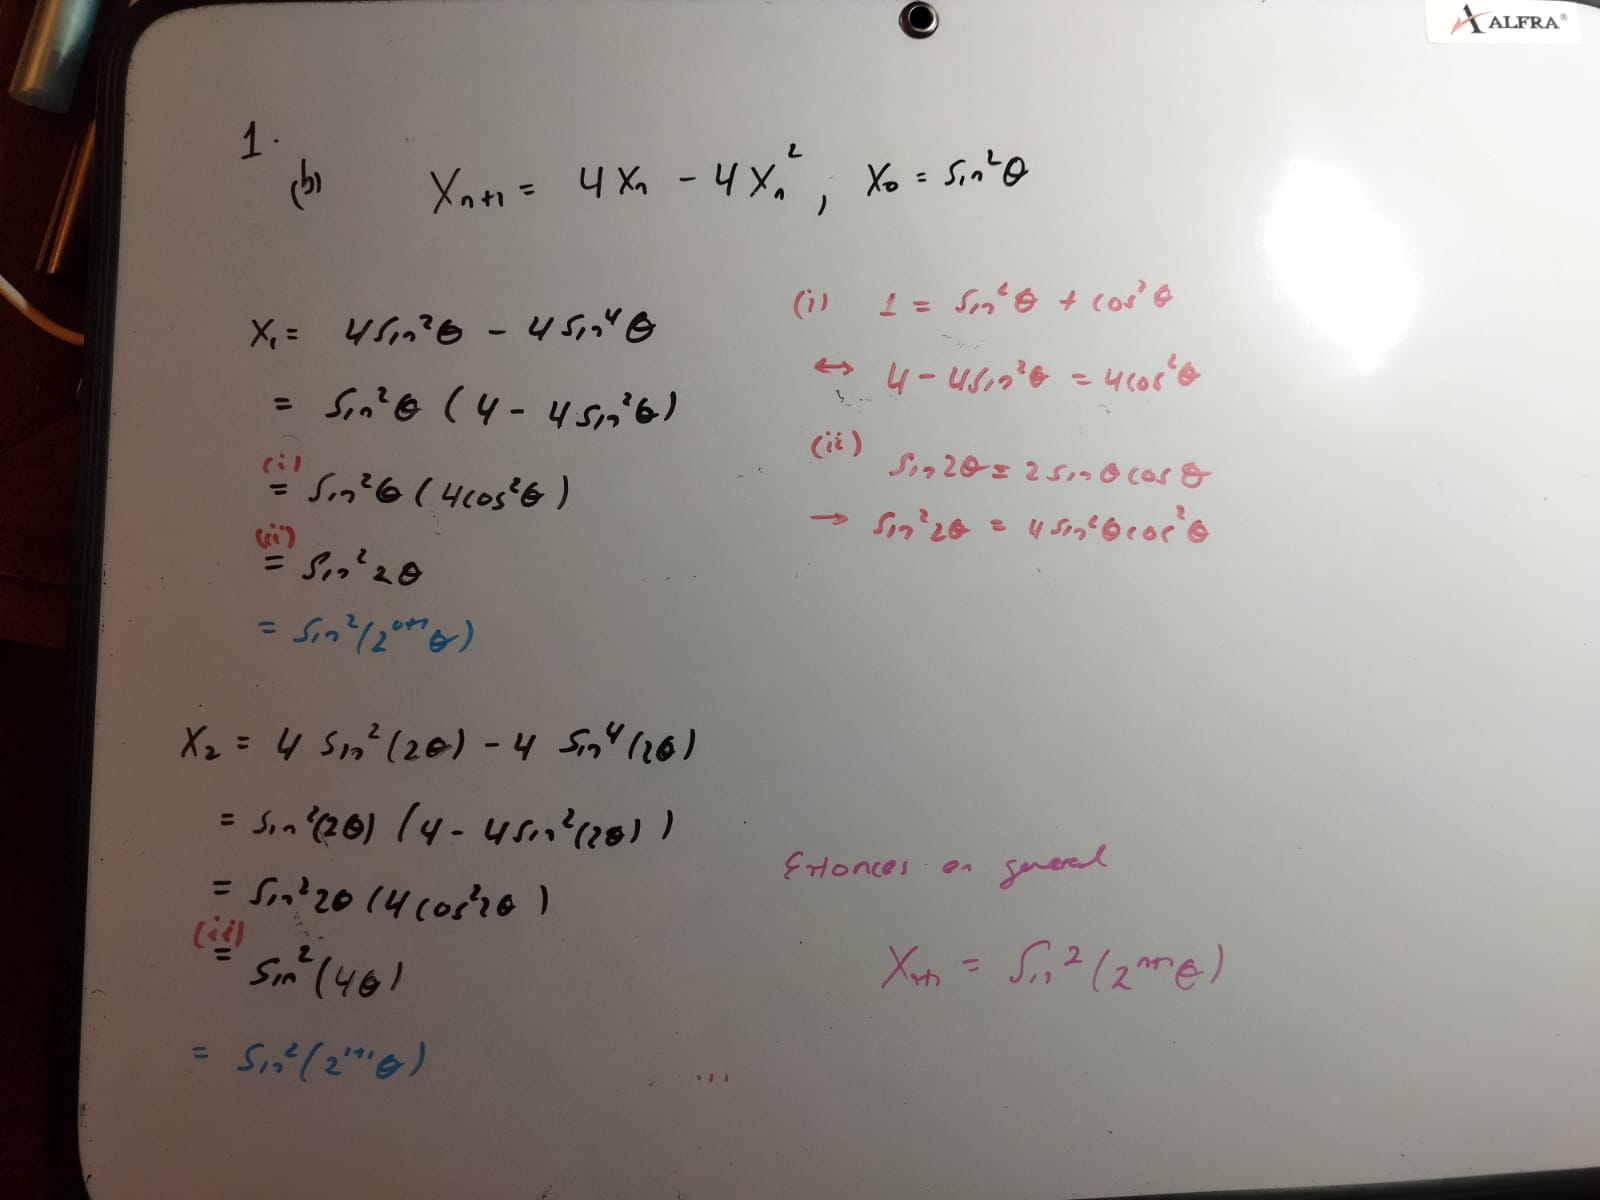 ALFRA®
1.
(b) Xn+1 = 4Xn - 4Xn², X0 = Sin²θ
X1 = 4Sin²θ - 4Sin⁴θ
= Sin²θ (4 - 4Sin²θ)
(i)
= Sin²θ (4cos²θ)
(ii)
= Sin²2θ
= Sin²(2⁰⁺¹θ)
(i) 1 = Sin²θ + cos²θ
↔ 4 - 4Sin²θ = 4cos²θ
(ii) Sin2θ = 2Sinθcosθ
→ Sin²2θ = 4Sin²θcos²θ
X2 = 4 Sin²(2θ) - 4 Sin⁴(2θ)
= Sin²(2θ) (4 - 4Sin²(2θ))
= Sin²2θ (4cos²2θ)
(ii)
= Sin²(4θ)
= Sin²(2¹⁺¹θ)
...
Entonces en general
Xn+1 = Sin²(2ⁿ⁺¹θ)